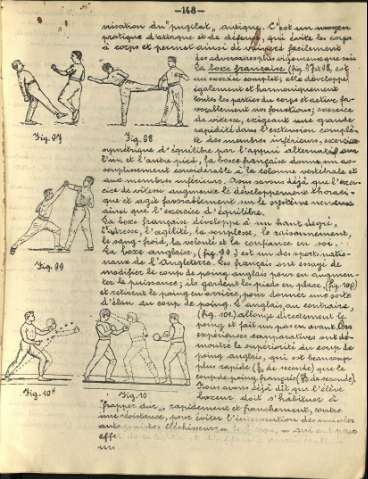 —148—
nisation du "pugilat" antique. C'est un moyen
pratique d'attaque et de défense, qui évite le corps
à corps et permet ainsi de vaincre facilement
des adversaires plus vigoureux que soi.
La boxe française (fig. 97 et 98) est
un exercice complet; elle développe
également et harmoniquement
toutes les parties du corps et active fa-
vorablement nos fonctions; exercice
de vitesse, exigeant une grande
rapidité dans l'extension complè-
te des membres inférieurs, exercice
Fig. 97
Fig. 98
symétrique d'équilibre par l'appui alternatif sur
l'un et l'autre pied, la boxe française donne un as-
souplissement considérable à la colonne vertébrale et
aux membres inférieurs. Nous savons déjà que l'exer-
cice de vitesse augmente le développement thoraci-
que et agit favorablement sur le système nerveux
ainsi que l'exercice d'équilibre.
La boxe française développe à un haut degré,
l'adresse, l'agilité, la souplesse, le raisonnement,
le sang-froid, la volonté et la confiance en soi.
La boxe anglaise, (fig. 99) est un des sports natio-
naux de l'Angleterre. Les français ont essayé de
modifier le coup de poing anglais pour en augmen-
ter la puissance; ils gardent les pieds en place, (fig. 100)
et retirent le poing en arrière, pour donner une sorte
d'élan au coup de poing. L'anglais, au contraire,
Fig. 99
(fig. 101) allonge directement le
poing et fait un pas en avant. Des
expériences comparatives ont dé-
montré la supériorité du coup de
poing anglais, qui est beaucoup
plus rapide ( de seconde) que le
coup de poing français ( de seconde).
Nous avons déjà dit que l'élève
boxeur doit s'habituer à
Fig. 10
Fig. 10
frapper dur, rapidement et franchement, contre
une résistance, pour éviter l'intervention des muscles